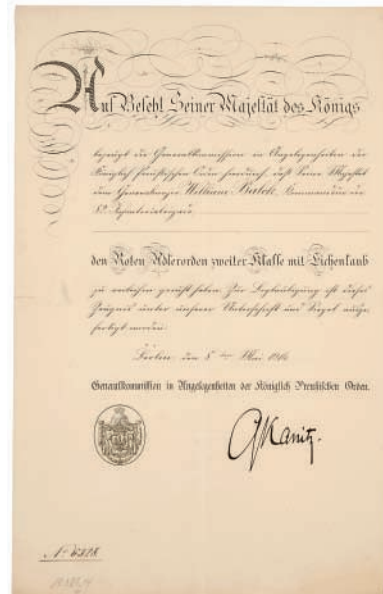 Auf Befehl Seiner Majestät des Königs
bezeugt die Generalkommission in Angelegenheiten der
Königlich Preußischen Orden hierdurch, daß Seine Majestät
dem Generalmajor William Balck, Kommandeur der
Infanteriebrigade
den Roten Adlerorden zweiter Klasse mit Eichenlaub
zu verleihen geruht haben. Zur Beglaubigung ist dieses
Zeugnis unter unserer Unterschrift und Siegel ausge-
fertigt worden.
Berlin, den 8 ten Mai
Generalkommission in Angelegenheiten der Königlich Preußischen Orden.
Kanitz.